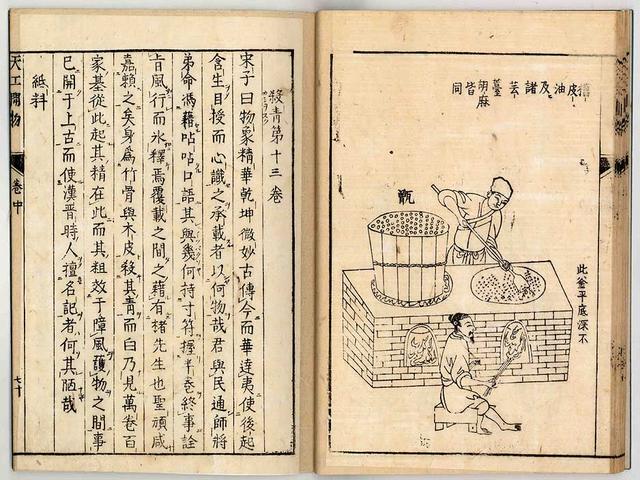 皮油及諸芸薹胡麻皆同
甑
此釜平底深不
殺青第十三卷
宋子曰物象精華乾坤微妙古傳今而華達夷使後起
含生目授而心識之承載者以何物哉君與民通師將
弟命馮藉呫呫口語其與幾何持寸符握半卷終事詮
旨風行而氷釋焉覆載之間之藉有楮先生也聖頑咸
嘉賴之矣身爲竹骨與木皮殺其青而白乃見萬卷百
家基從此起其精在此而其粗效于障風護物之間事
已開于上古而使漢晉時人擅名記者何其陋哉
紙料
天工開物 卷中 七十